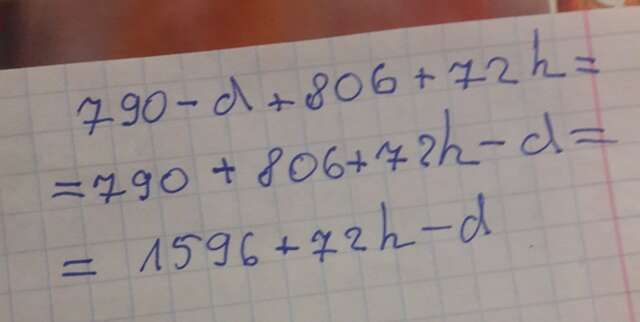 790-d+806+72h=
=790+806+72h-d=
= 1596+72h-d